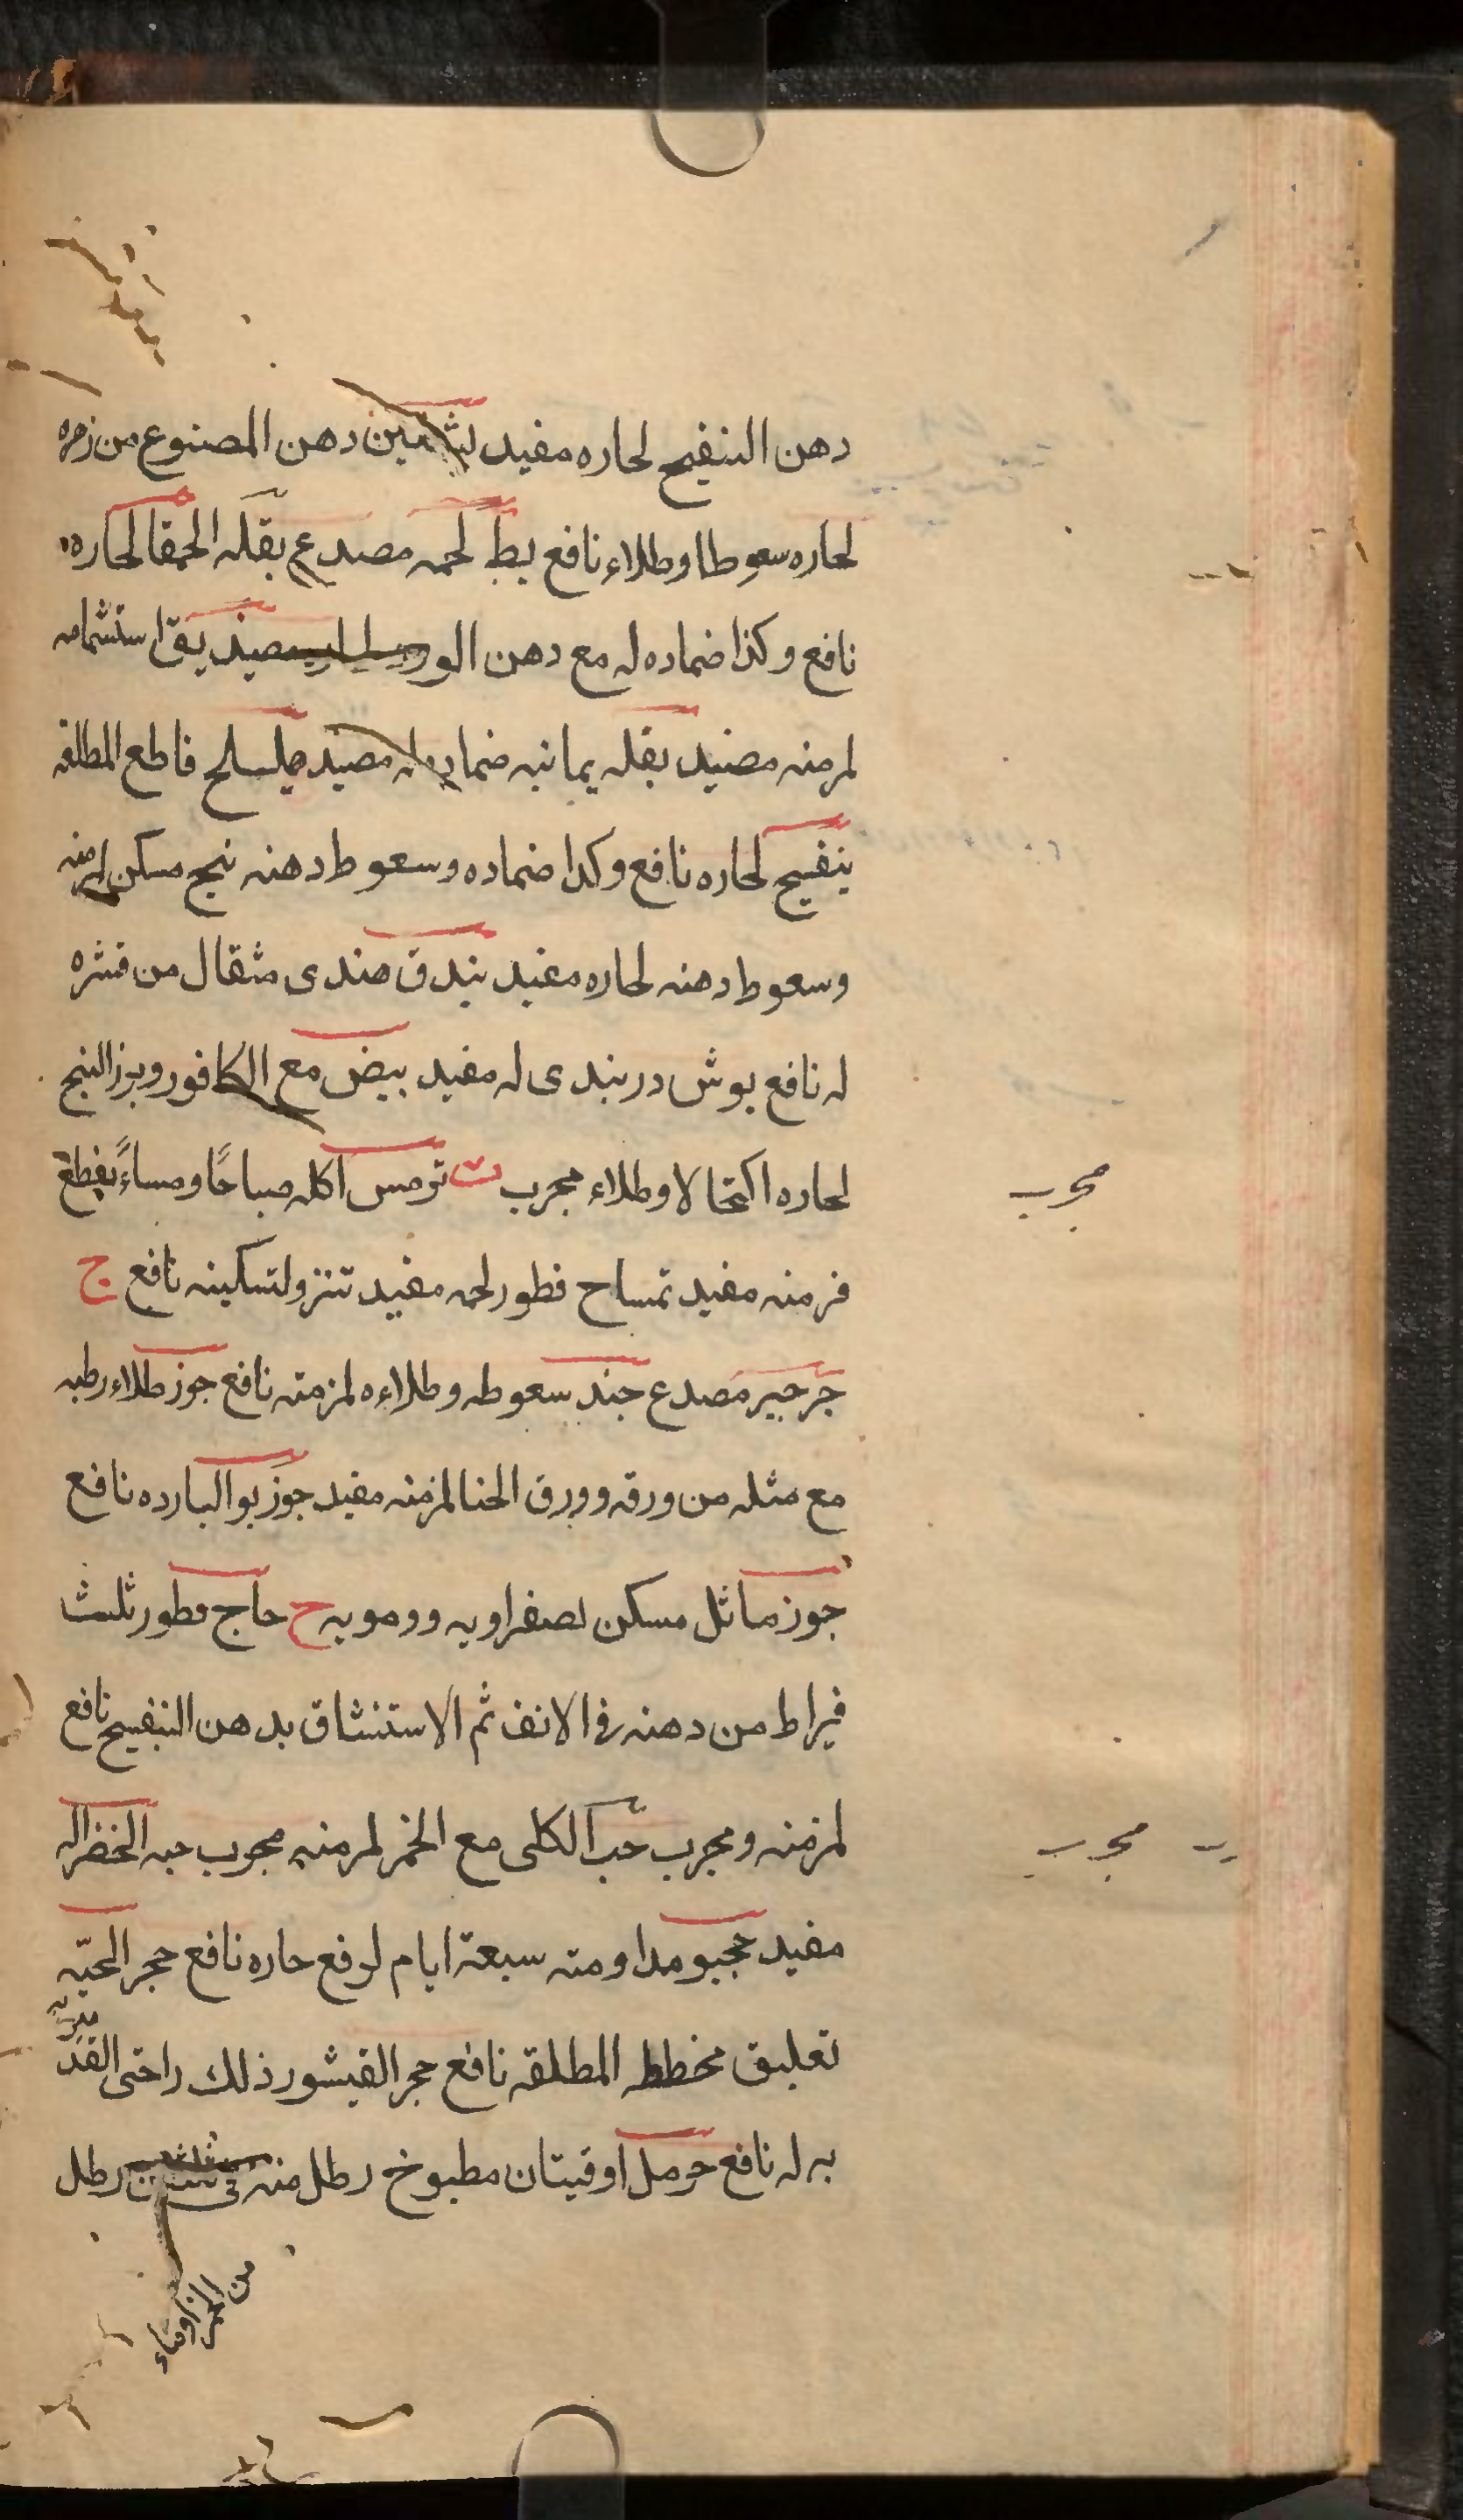 دهن البنفسج لحاره مفيد دهن المصنوع من زهره
لحاره سعوطا وطلاء نافع بط لحمه مصدع بقله الحمقا لحاره
نافع وكذا ضماده له مع دهن الورد بق استشمامه
لمزمنه مفيد بقله يمانيه ضماد مفيد قاطع المطلقه
بنفسج لحاره نافع وكذا ضماده وسعوط دهنه بنج مسكن لمزمنه
وسعوط دهنه لحاره مفيد بندق هندى مثقال من قشره
له نافع بوش دربندى له مفيد بيض مع الكافور وبزر البنج
لحاره اكتحالا وطلاء مجرب ت ترمس اكله صباحًا ومساءً
مجرب
مفيد تمساح فطور لحمه مفيد لتسكينه نافع ج
جرجير مصدع جند سعوطه وطلاءه لمزمنه نافع جوز طلاء رطبه
مع مثله من ورقه وورق الحنا لمزمنه مفيد جوز بوا لبارده نافع
جوز ماثل مسكن لصفراويه ودمويه ح حاج قطور ثلث
قيراط من دهنه فى الانف ثم الاستنشاق بدهن البنفسج نافع
لمزمنه ومجرب حب الكلى مع الخمر لمزمنه مجرب حبه الخضرا له
مجرب
مفيد مداومته سبعة ايام لرفع حاره نافع حجر الحيّه
تعليق مخططه المطلقه نافع حجر القيشور ذلك راحتى
به له نافع حرمل اوقيتان مطبوخ رطل منه فى رطل
من الخمر او ماء